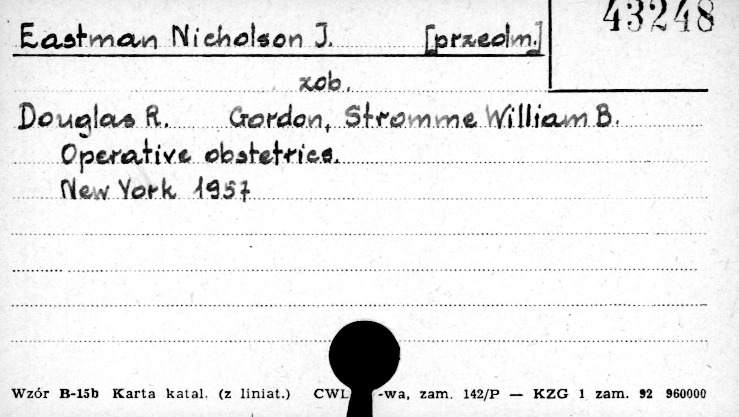 43248
Eastman Nicholson J. [przedm.]
zob.
Douglas R. Gordon, Stromme William B.
Operative obstetrics.
New York 1957
Wzór B-15b Karta katal. (z liniat.) CWL -wa, zam. 142/P — KZG 1 zam. 92 960000